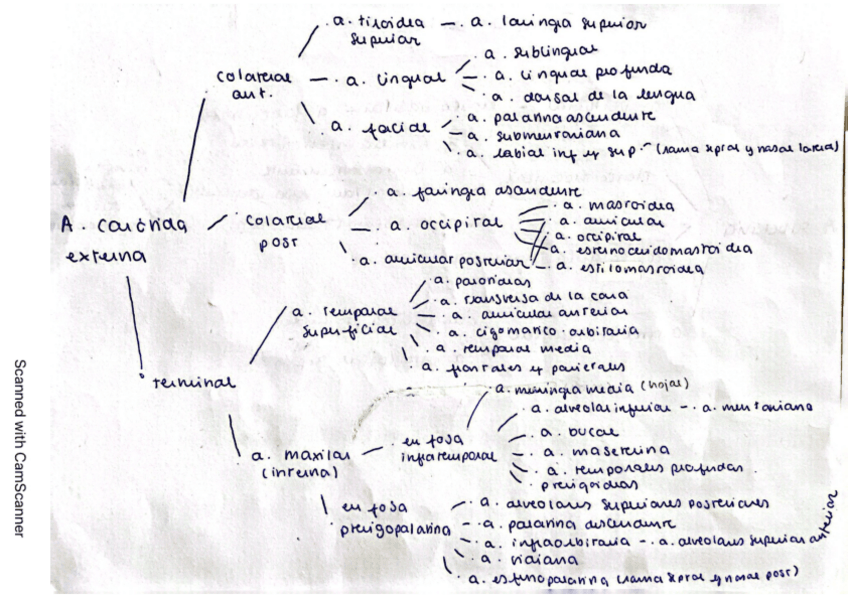 a. tiroidea superior - a. laringia superior
colateral ant. - a. lingual
a. sublingual
a. lingual profunda
a. dorsal de la lengua
a. facial
a. palatina ascendente
a. submentoniana
a. labial inf y sup (rama septal y nasal lateral)
A. carótida externa
colateral post
a. faringia ascendente
a. occipital
a. mastoidea
a. auricular
a. occipital
a. esternocleidomastoidea
a. auricular posterior
a. estilomastoidea
terminal
a. temporal superficial
a. parotideas
a. transversa de la cara
a. auricular anterior
a. cigomatico orbitaria
a. temporal media
a. frontales y parietales
a. maxilar (interna)
en fosa infratemporal
a. meningia media (hojas)
a. alveolar inferior - a. mentoniana
a. bucal
a. maseterina
a. temporales profundas
pterigoideas
en fosa pterigopalatina
a. alveolares superiores posteriores
a. palatina descendente
a. infraorbitaria - a. alveolares superior anterior
a. vidiana
a. esfenopalatina (rama septal y nasal post)
Scanned with CamScanner